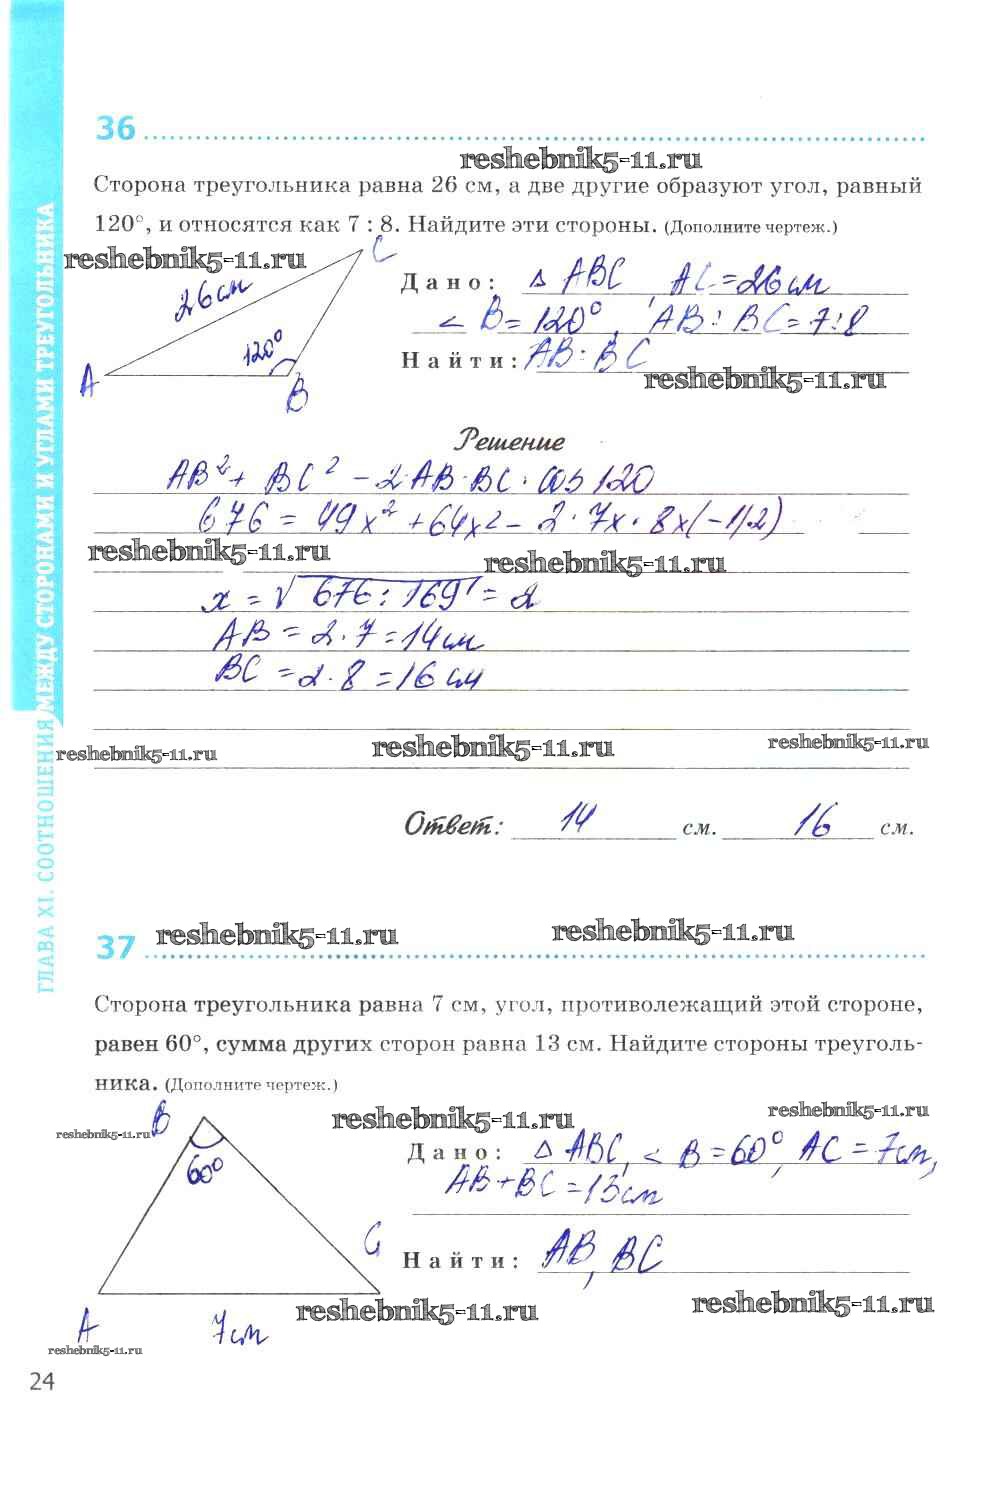 36
reshebnik5-11.ru
Сторона треугольника равна 26 см, а две другие образуют угол, равный
120°, и относятся как 7 : 8. Найдите эти стороны. (Дополните чертеж.)
reshebnik5-11.ru
C
26 см
120°
A
B
Дано: Δ ABC, AC = 26 см
∠ B = 120°, AB : BC = 7 : 8
Найти: AB : BC
reshebnik5-11.ru
Решение
AB² + BC² - 2·AB·BC·cos 120
676 = 49x² + 64x² - 2·7x·8x(-1/2)
reshebnik5-11.ru
reshebnik5-11.ru
x = √676 : 169 = 2
AB = 2·7 = 14 см
BC = 2·8 = 16 см
reshebnik5-11.ru
reshebnik5-11.ru
reshebnik5-11.ru
Ответ: 14 см. 16 см.
37
reshebnik5-11.ru
reshebnik5-11.ru
Сторона треугольника равна 7 см, угол, противолежащий этой стороне,
равен 60°, сумма других сторон равна 13 см. Найдите стороны треуголь-
ника. (Дополните чертеж.)
B
reshebnik5-11.ru
reshebnik5-11.ru
reshebnik5-11.ru
60°
Дано: Δ ABC, ∠ B = 60°, AC = 7 см,
AB + BC = 13 см
C
Найти: AB, BC
reshebnik5-11.ru
reshebnik5-11.ru
A
7 см
reshebnik5-11.ru
24
ГЛАВА XI. СООТНОШЕНИЯ МЕЖДУ СТОРОНАМИ И УГЛАМИ ТРЕУГОЛЬНИКА